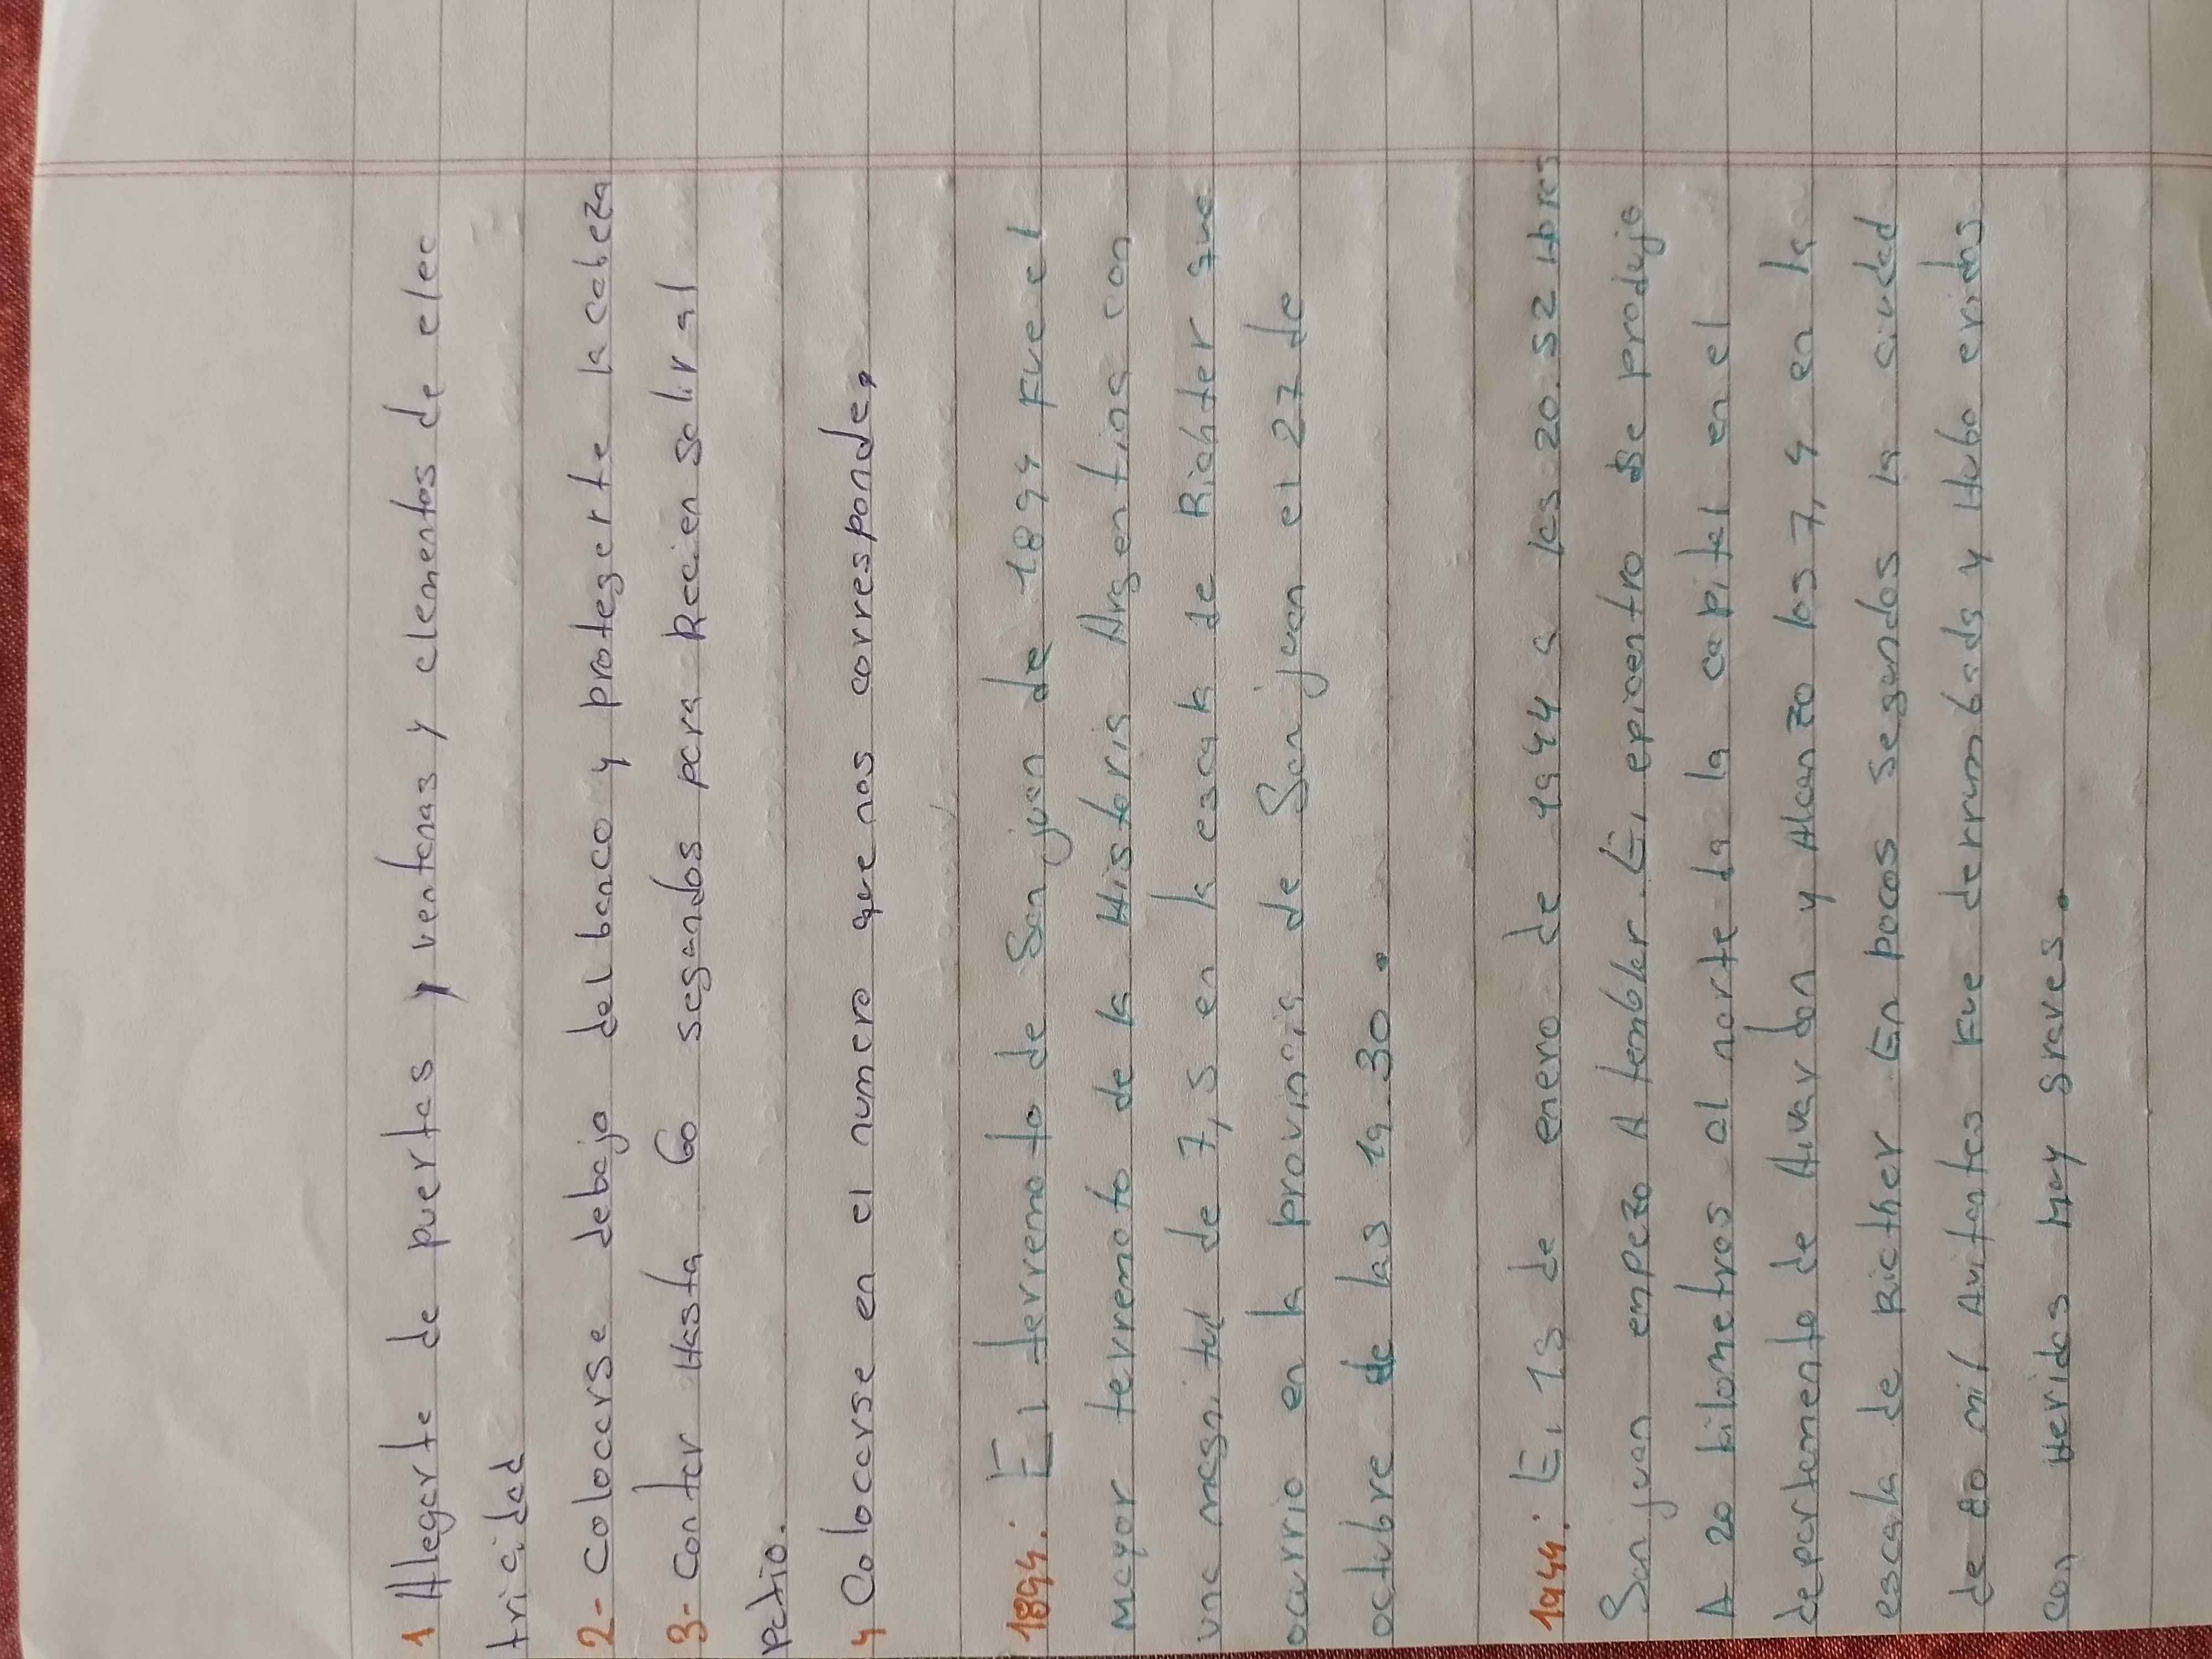 1 Allegarte de puertas y ventanas y elementos de elec
tricidad
2- Colocarse debajo del banco y protegerte la cabeza
3- Contar Hasta 60 segundos para Recien salir al
patio.
4 Colocarse en el numero que nos corresponde.
1894: El terremoto de San juan de 1894 fue el
mayor terremoto de la Historia Argentina con
una magnitud de 7,5 en la escala de Richter que
ocurrio en la provincia de San juan el 27 de
octubre de las 19.30.
1944: El 15 de enero de 1944 a las 20.52 Hores
San juan empezo A temblar. El epicentro se produjo
A 20 kilometros al norte da la capital en el
departamento de Alvardon y Alcanzo los 7,4 en la
escala de Ricther En pocos segundos la ciudad
de 80 mil Avitantes fue derrumbada y Hubo eridos
con Heridas muy graves.